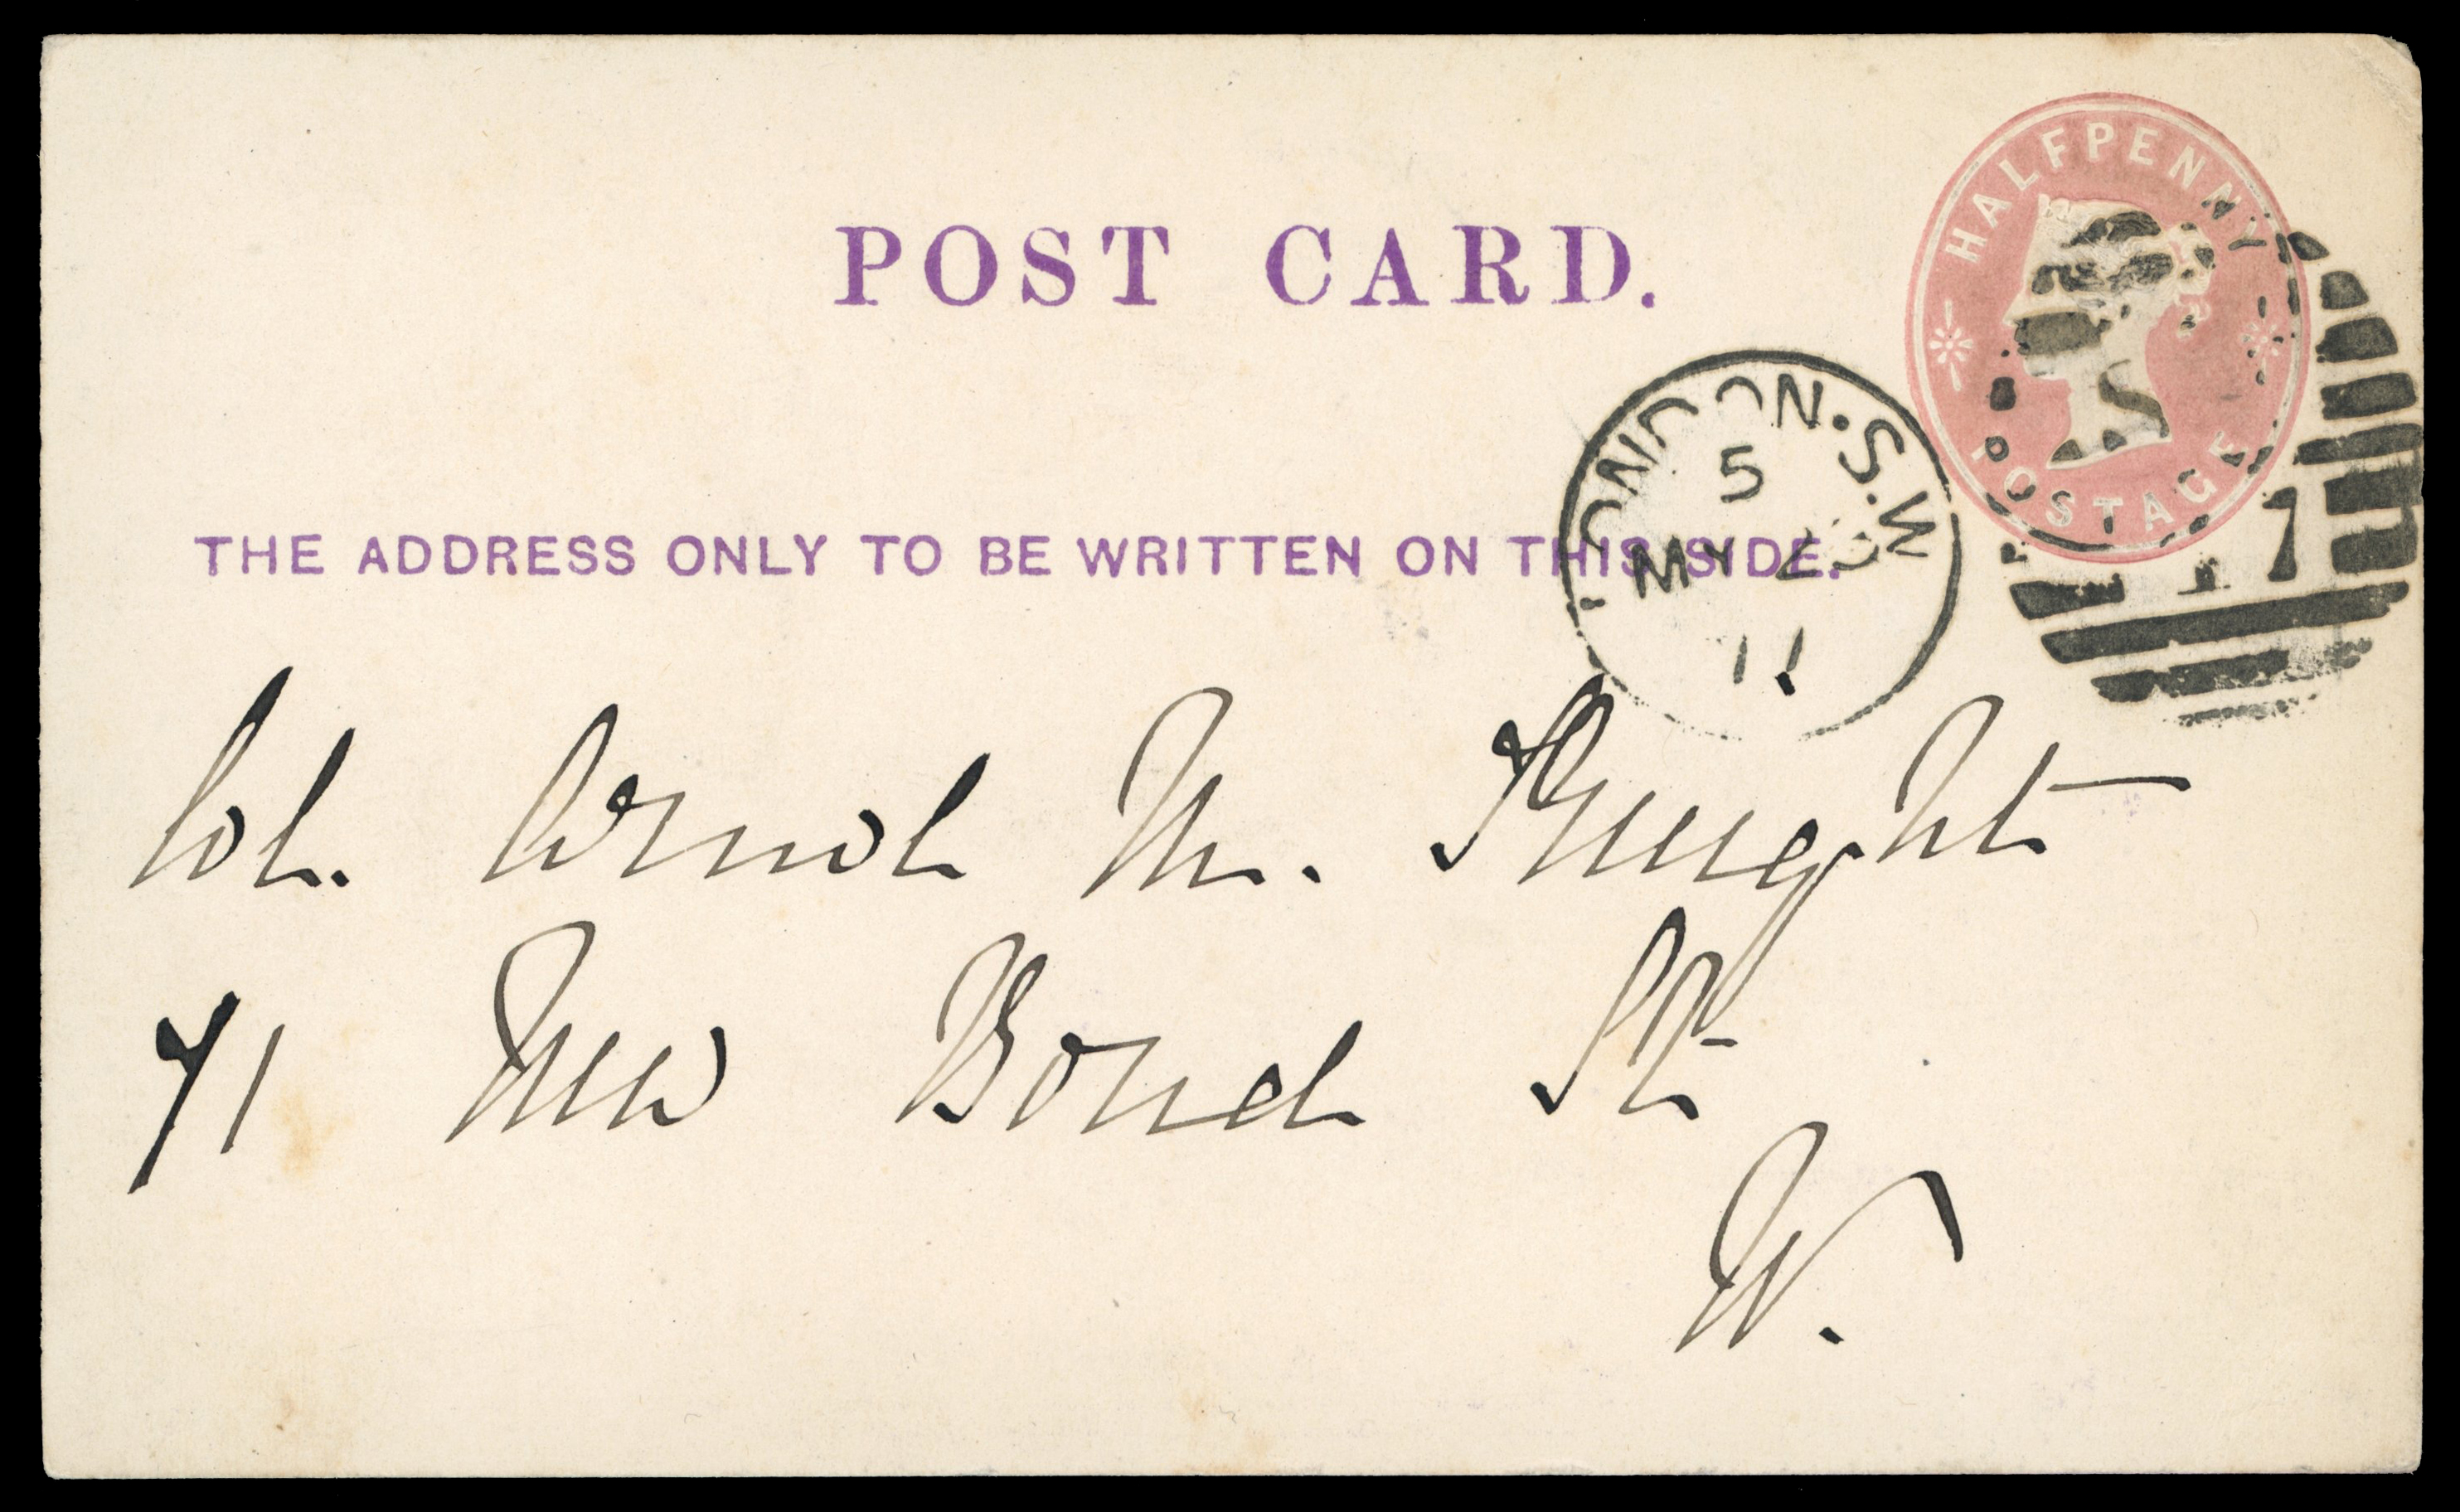 HALFPENNY
POSTAGE
POST CARD.
LONDON.S.W
5
MY
11
THE ADDRESS ONLY TO BE WRITTEN ON THIS SIDE.
Col. M. Knight
71 New Bond St
W.